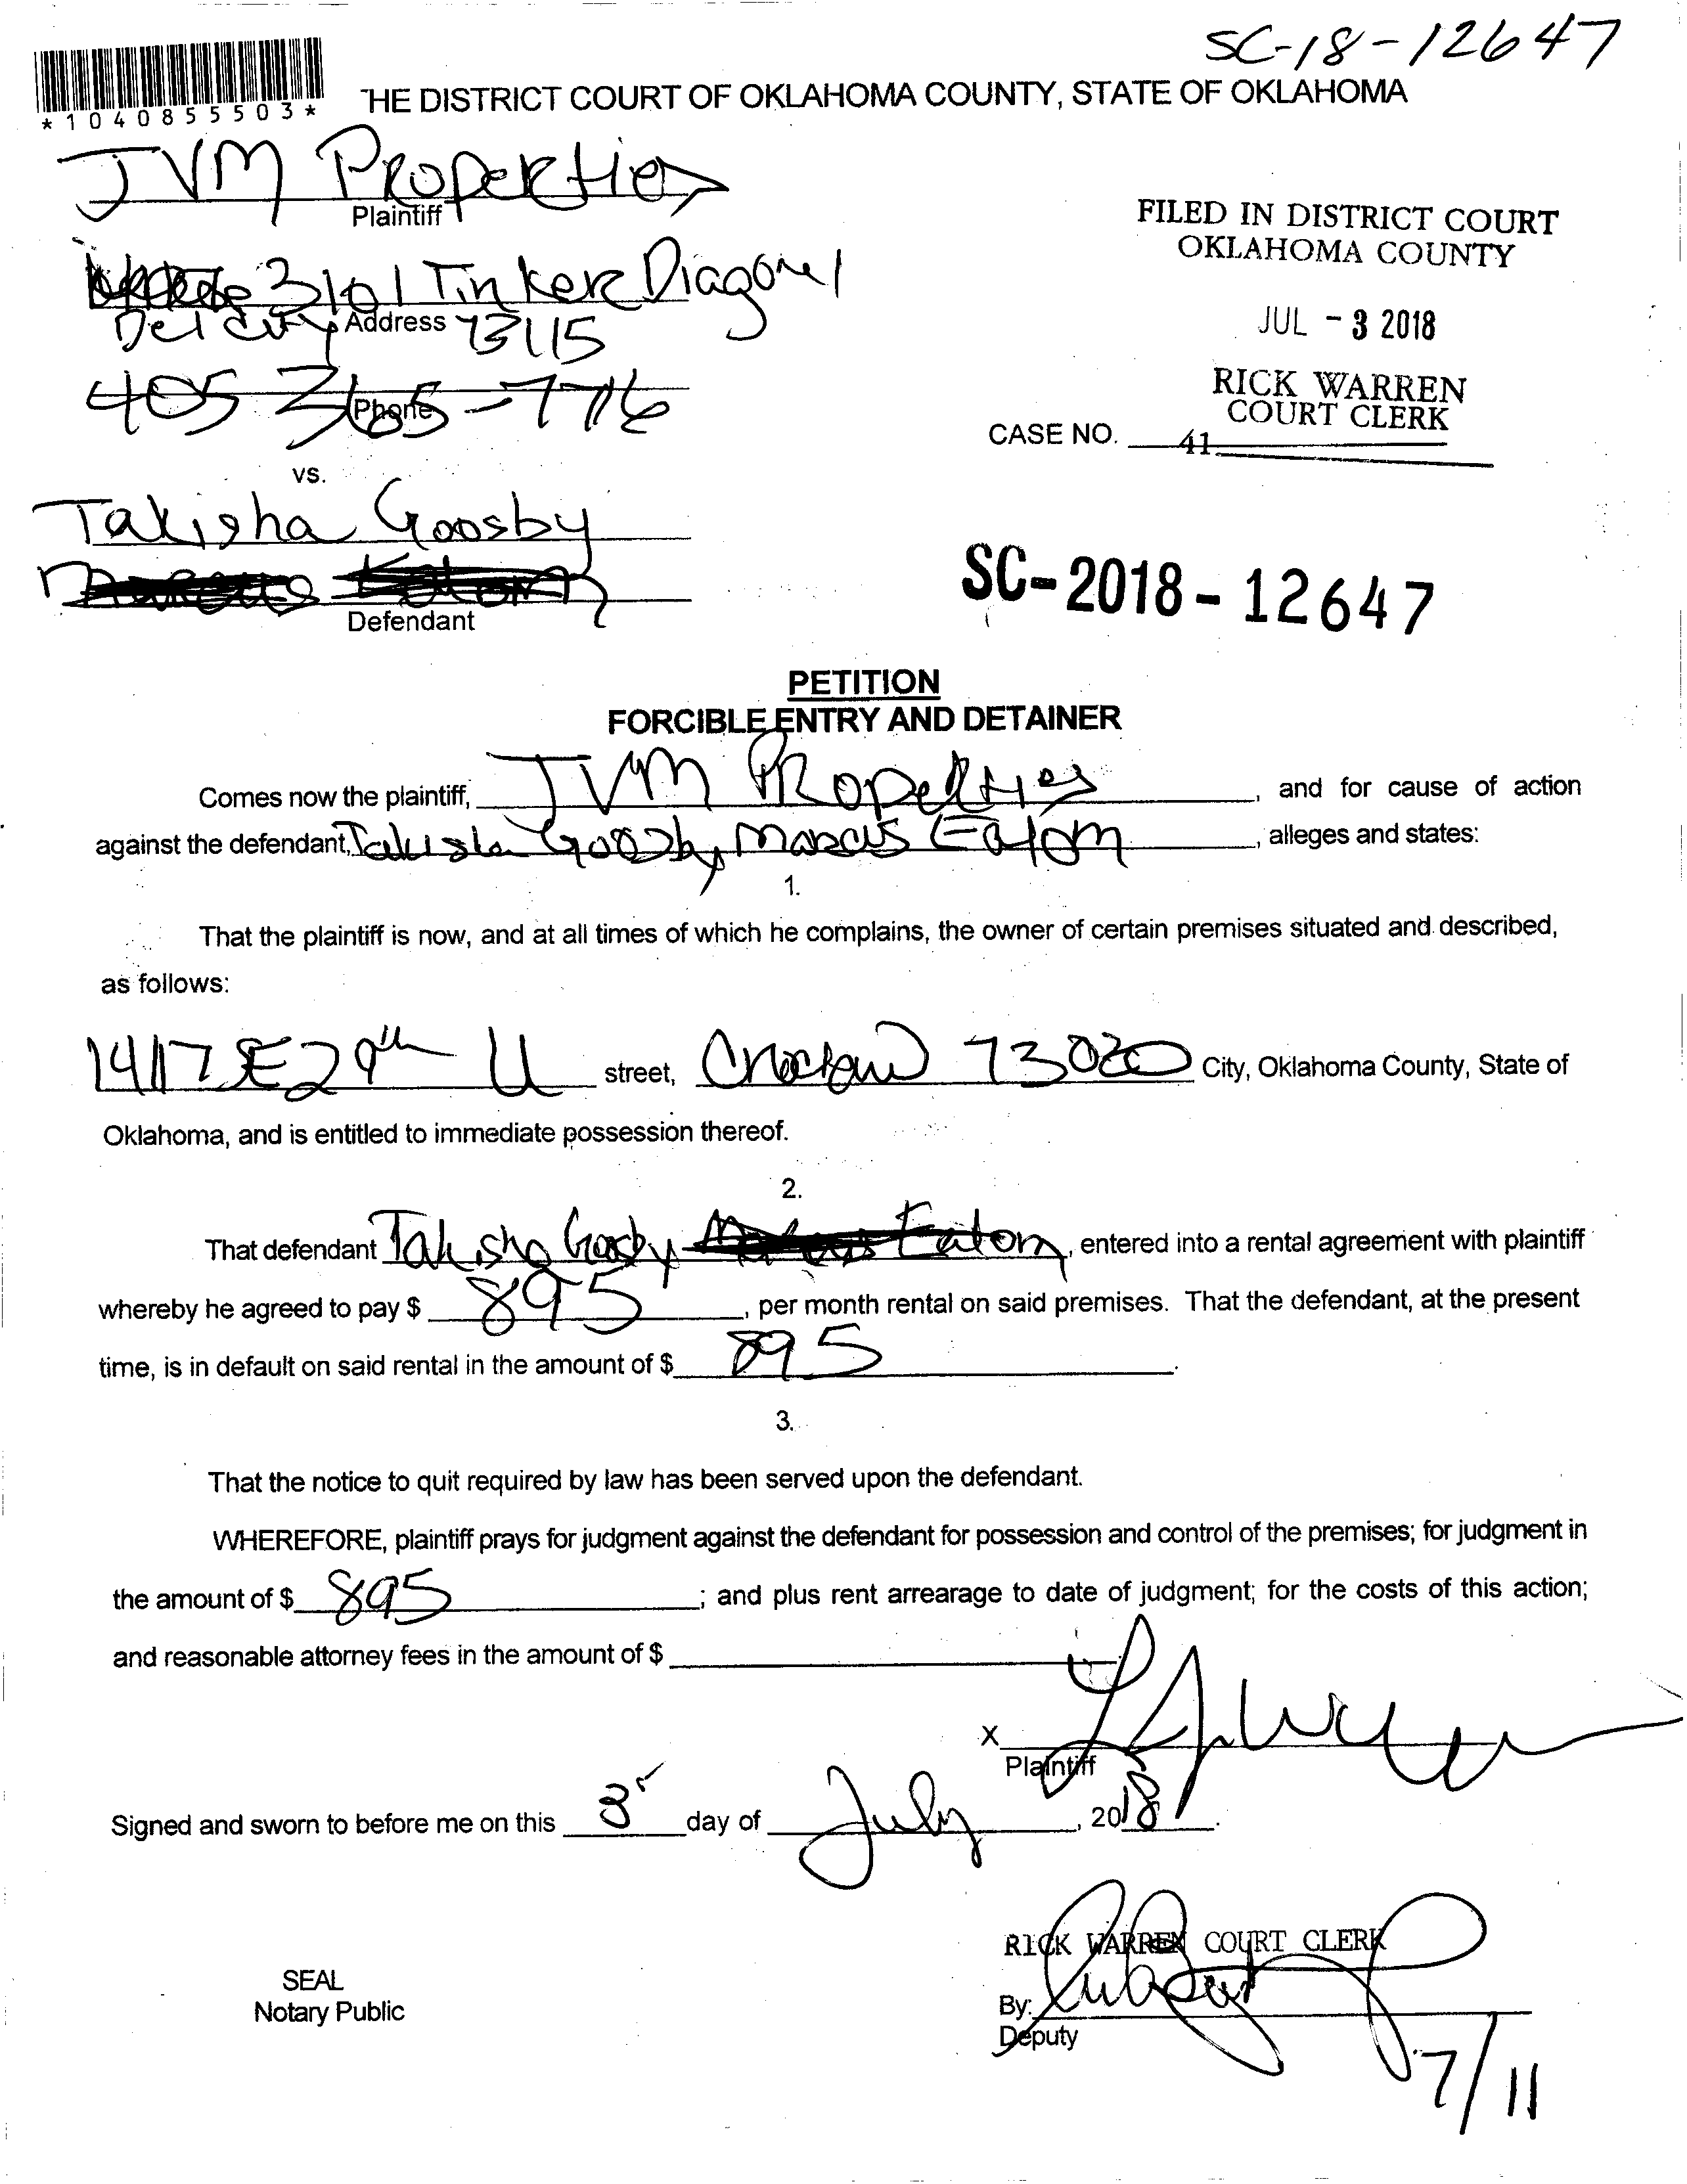 SC-18-12647
*1040855503*
THE DISTRICT COURT OF OKLAHOMA COUNTY, STATE OF OKLAHOMA
JVM Properties
Plaintiff
3101 Tinker Diagonal
Del City 73115
Address
405 365-7716
Phone
FILED IN DISTRICT COURT
OKLAHOMA COUNTY
JUL - 3 2018
RICK WARREN
COURT CLERK
CASE NO.
41
vs.
Takisha Goosby
Defendant
SC-2018-12647
PETITION
FORCIBLE ENTRY AND DETAINER
Comes now the plaintiff, JVM Properties, and for cause of action
against the defendant, Takisha Goosby, Marcus Eatom, alleges and states:
1.
That the plaintiff is now, and at all times of which he complains, the owner of certain premises situated and described,
as follows:
14117 SE 29th U street, Choctaw 73020 City, Oklahoma County, State of
Oklahoma, and is entitled to immediate possession thereof.
2.
That defendant Takisha Goosby Eatom, entered into a rental agreement with plaintiff
whereby he agreed to pay $ 895, per month rental on said premises. That the defendant, at the present
time, is in default on said rental in the amount of $ 895.
3.
That the notice to quit required by law has been served upon the defendant.
WHEREFORE, plaintiff prays for judgment against the defendant for possession and control of the premises; for judgment in
the amount of $ 895; and plus rent arrearage to date of judgment; for the costs of this action;
and reasonable attorney fees in the amount of $
X
Plaintiff
Signed and sworn to before me on this 3r day of July, 2018.
RICK WARREN COURT CLERK
SEAL
Notary Public
By:
Deputy
7/11